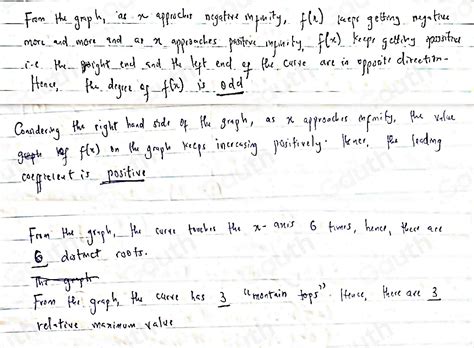 From the graph, as x approches negative infinity, f(x) keeps getting negative
more and more and as x approaches positive infinity, f(x) keeps getting positive
i.e. the right end and the left end of the curve are in opposite direction.
Hence, the degree of f(x) is odd
Considering the right hand side of the graph, as x approaches infinity, the value
of f(x) on the graph keeps increasing positively. Hence, the leading
coefficient is positive
From the graph, the curve touches the x-axis 6 times, hence, there are
6 distinct roots.
The graph
From the graph, the curve has 3 "montain tops". Hence, there are 3
relative maximum value